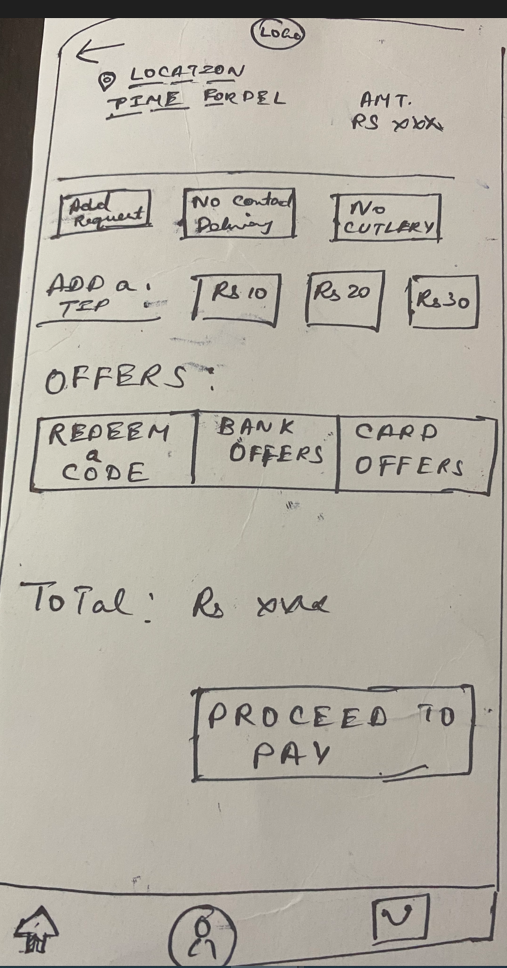 LOGO
LOCATION
TIME FOR DEL
AMT.
RS xxx
Add Request
No Contact Delivery
No CUTLERY
ADD a TIP
Rs 10
Rs 20
Rs 30
OFFERS:
REDEEM a CODE
BANK OFFERS
CARD OFFERS
Total: Rs xxx
PROCEED TO
PAY